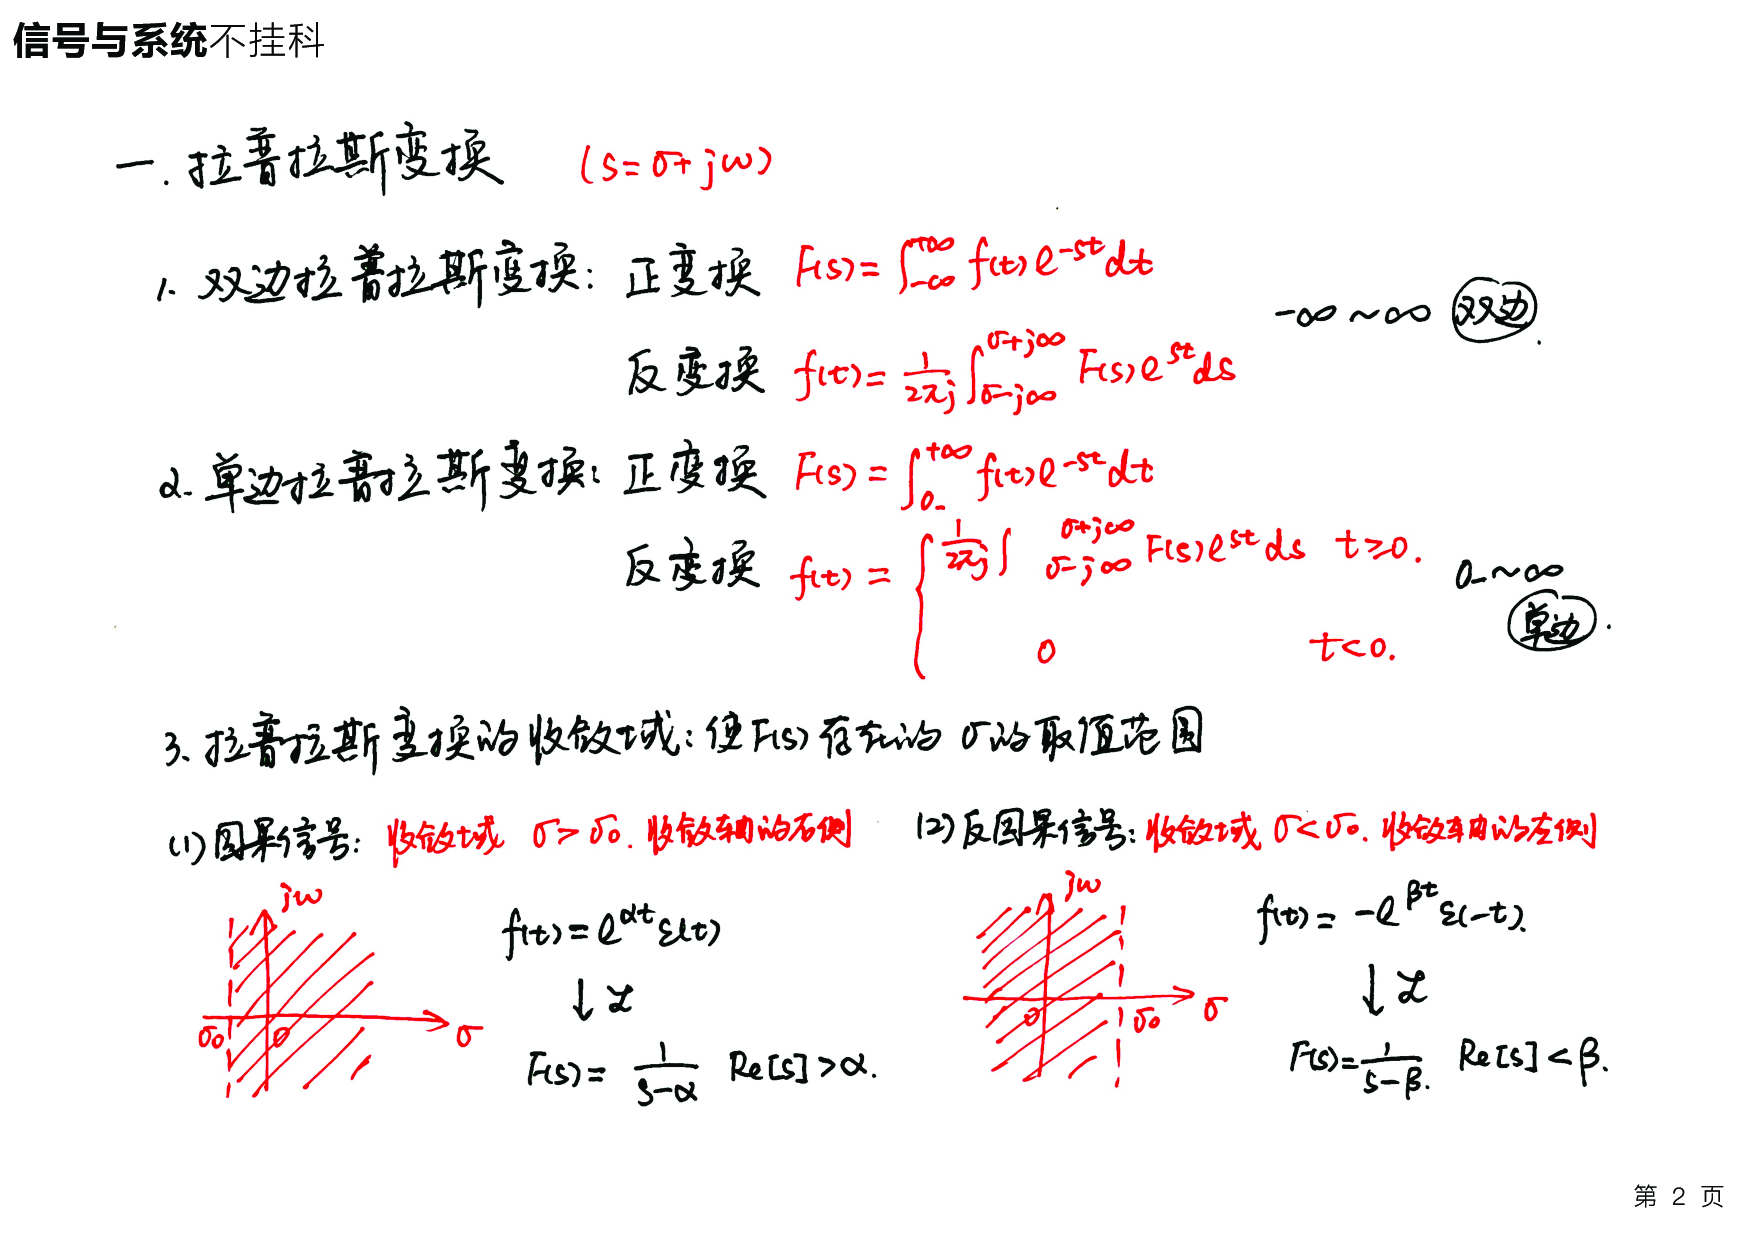 信号与系统不挂科
一. 拉普拉斯变换 (s=σ+jω)
1. 双边拉普拉斯变换: 正变换 F(s)=∫_{-∞}^{+∞} f(t)e^{-st}dt
-∞~∞ 双边.
反变换 f(t)=\frac{1}{2πj}∫_{σ-j∞}^{σ+j∞} F(s)e^{st}ds
2. 单边拉普拉斯变换: 正变换 F(s)=∫_{0_-}^{+∞} f(t)e^{-st}dt
反变换 f(t)={ \frac{1}{2πj}∫_{σ-j∞}^{σ+j∞} F(s)e^{st}ds t≥0.
0 t<0.
0_-~∞
单边.
3. 拉普拉斯变换的收敛域: 使F(s)存在的σ的取值范围
(1) 因果信号: 收敛域 σ>σ₀. 收敛轴的右侧
jω
σ₀ 0 σ
f(t)=e^{αt}ε(t)
↓ℒ
F(s)=\frac{1}{s-α} Re[s]>α.
(2) 反因果信号: 收敛域 σ<σ₀. 收敛轴的左侧
jω
0 σ₀ σ
f(t)=-e^{βt}ε(-t).
↓ℒ
F(s)=\frac{1}{s-β}. Re[s]<β.
第 2 页